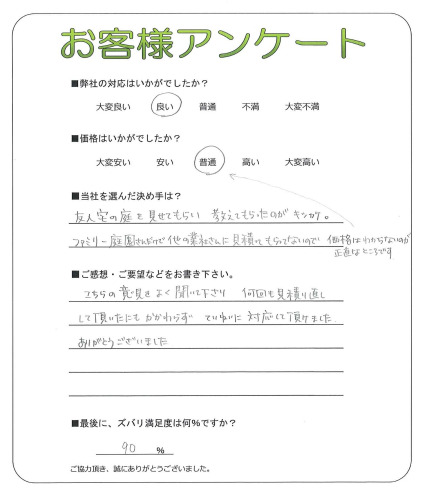 お客様アンケート
■弊社の対応はいかがでしたか？
大変良い 良い 普通 不満 大変不満
■価格はいかがでしたか？
大変安い 安い 普通 高い 大変高い
■当社を選んだ決め手は？
友人宅の庭を見せてもらい 教えてもらったのが キッカケ。
ファミリー庭園さんだけで他の業社さんに見積してもらってないので 価格はわからないのが
正直なところです
■ご感想・ご要望などをお書き下さい。
こちらの意見をよく聞いて下さり 何回も見積り直し
して頂いたにもかかわらず ていねいに対応して頂けました
ありがとうございました
■最後に、ズバリ満足度は何％ですか？
90 ％
ご協力頂き、誠にありがとうございました。